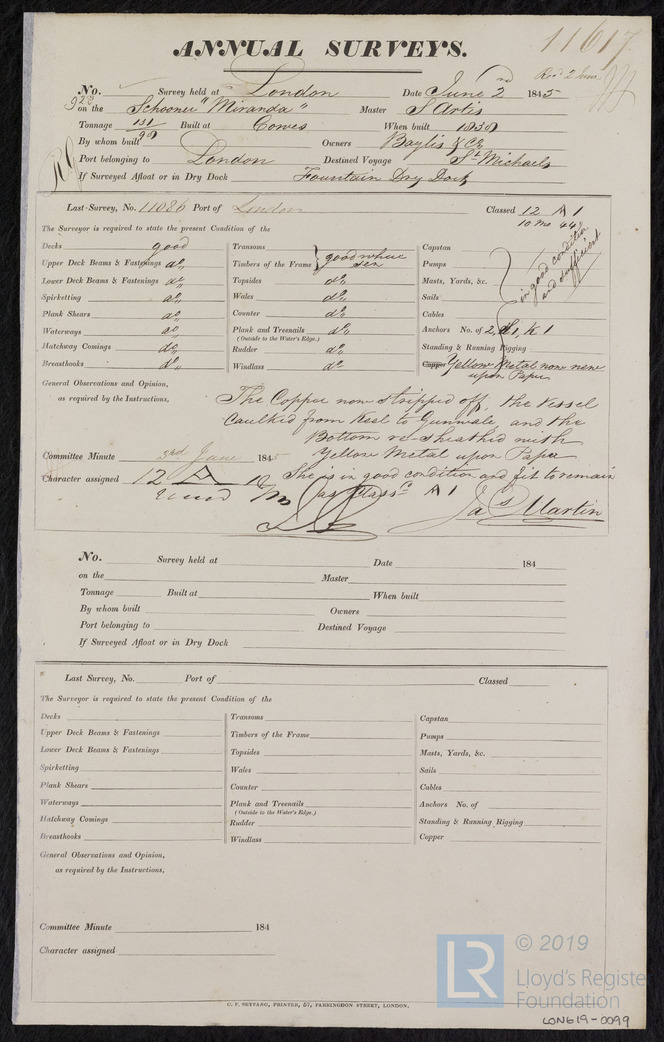 ANNUAL SURVEYS.
11617
Recd 2 June
No. 928 Survey held at London Date June 2nd 1845
on the Schooner "Miranda" Master S Artis
Tonnage 131/98 Built at Cowes When built 1838
By whom built Owners Baylis & Co
Port belonging to London Destined Voyage St Michaels
If Surveyed Afloat or in Dry Dock Fountain Dry Dock
Last Survey, No. 11086 Port of London Classed 12 A 1
10 Mo 44
The Surveyor is required to state the present Condition of the
Decks good
Upper Deck Beams & Fastenings do
Lower Deck Beams & Fastenings do
Spirketting do
Plank Shears do
Waterways do
Hatchway Comings do
Breasthooks do
Transoms
Timbers of the Frame } good where seen
Topsides do
Wales do
Counter do
Plank and Treenails do
(Outside to the Water's Edge.)
Rudder do
Windlass do
Capstan
Pumps
Masts, Yards, &c.
Sails
Cables
in good condition and sufficient
Anchors No. of 2, S1, K1
Standing & Running Rigging
Copper Yellow Metal now new
upon Paper
General Observations and Opinion,
as required by the Instructions,
The Copper now stripped off, the Vessel
Caulked from Keel to Gunwale, and the
Bottom re-sheathed with
Yellow Metal upon Paper
She is in good condition and fit to remain
as Classed A 1
Jas Martin
Committee Minute 3rd June 1845
Character assigned 12 A
No. Survey held at Date 184
on the Master
Tonnage Built at When built
By whom built Owners
Port belonging to Destined Voyage
If Surveyed Afloat or in Dry Dock
Last Survey, No. Port of Classed
The Surveyor is required to state the present Condition of the
Decks
Upper Deck Beams & Fastenings
Lower Deck Beams & Fastenings
Spirketting
Plank Shears
Waterways
Hatchway Comings
Breasthooks
Transoms
Timbers of the Frame
Topsides
Wales
Counter
Plank and Treenails
(Outside to the Water's Edge.)
Rudder
Windlass
Capstan
Pumps
Masts, Yards, &c.
Sails
Cables
Anchors No. of
Standing & Running Rigging
Copper
General Observations and Opinion,
as required by the Instructions,
Committee Minute 184
Character assigned
C. F. SEYFANG, PRINTER, 57, FARRINGDON STREET, LONDON.
LR © 2019
Lloyd's Register
Foundation
LON619-0099